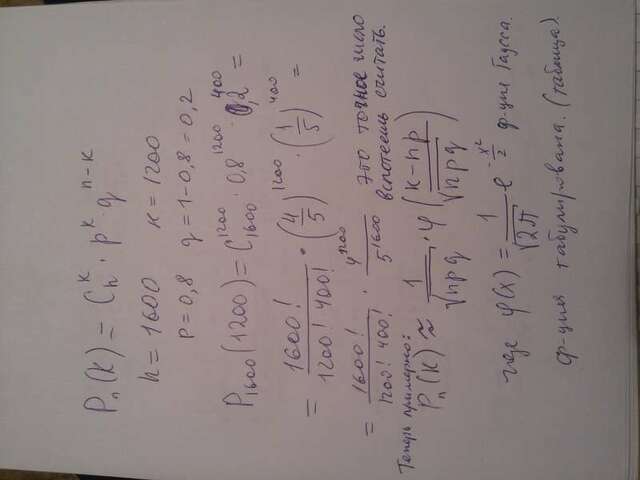 Pₙ(k) = Cₙᵏ · pᵏ · qⁿ⁻ᵏ
n = 1600 k = 1200
p = 0,8 q = 1 - 0,8 = 0,2
P₁₆₀₀(1200) = C₁₆₀₀¹²⁰⁰ · 0,8¹²⁰⁰ · 0,2⁴⁰⁰ =
= 1600! / 1200! 400! · (4/5)¹²⁰⁰ · (1/5)⁴⁰⁰ =
= 1600! / 1200! 400! · 4¹²⁰⁰ / 5¹⁶⁰⁰ это точное число
вспотеешь считать.
Теперь примерно:
Pₙ(k) ≈ 1/√npq · φ(k-np / √npq)
где φ(x) = 1/√2π e^(-x²/2) ф-ция Гаусса.
Ф-ция табулирована. (таблица)